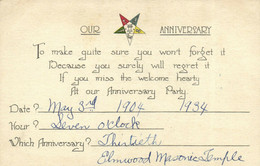 OUR ANNIVERSARY
To make quite sure you won't forget it
Because you surely will regret it
If you miss the welcome hearty
At our Anniversary Party
Date? May 3rd 1904 1934
Hour? Seven o'clock
Which Anniversary? Thirtieth
Elmwood Masonic Temple